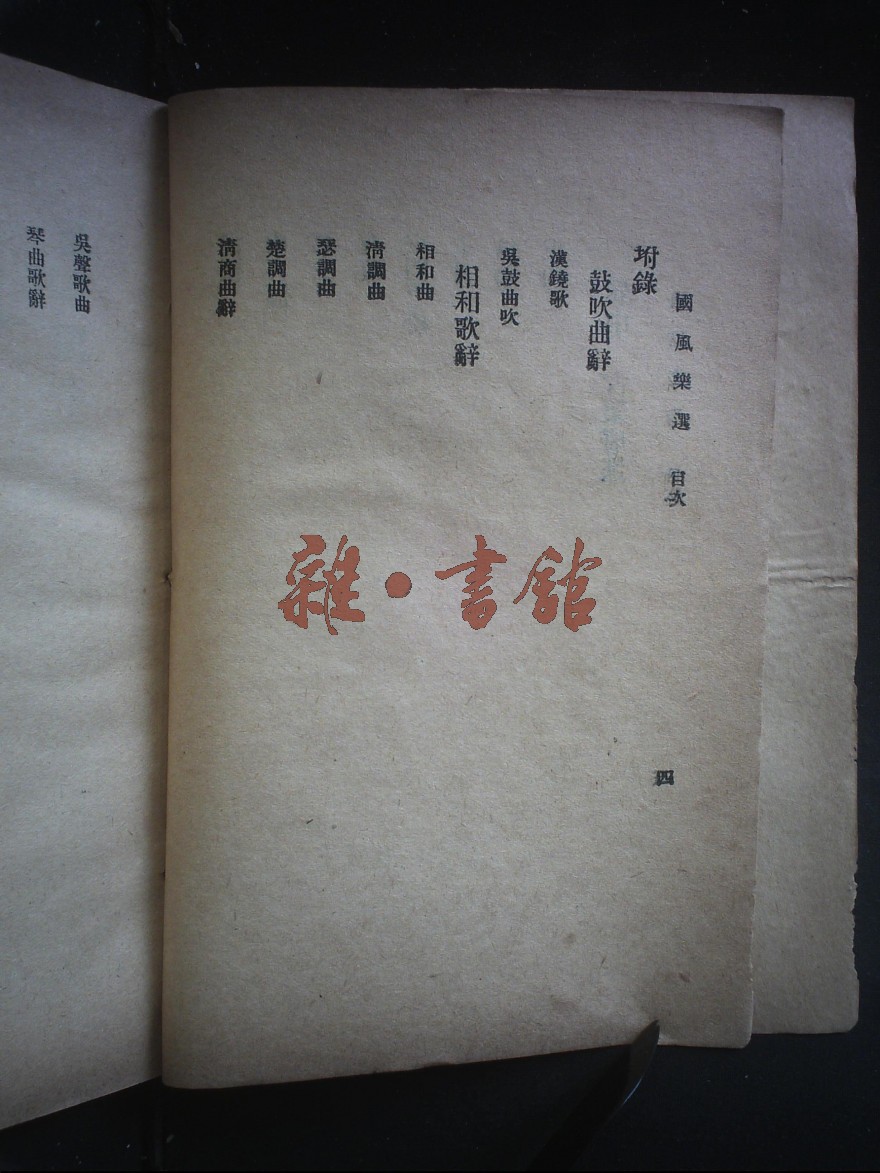 國風樂選 目次
四
坿錄
鼓吹曲辭
漢鐃歌
吳鼓曲吹
相和歌辭
相和曲
淸調曲
瑟調曲
楚調曲
淸商曲辭
吳聲歌曲
琴曲歌辭
雜·書館